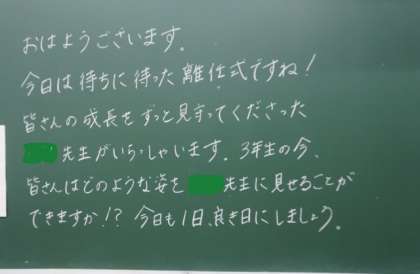 おはようございます。
今日は待ちに待った離任式ですね！
皆さんの成長をずっと見守ってくださった
先生がいらっしゃいます。3年生の今、
皆さんはどのような姿を 先生に見せることが
できますか！？今日も1日、良き日にしましょう。